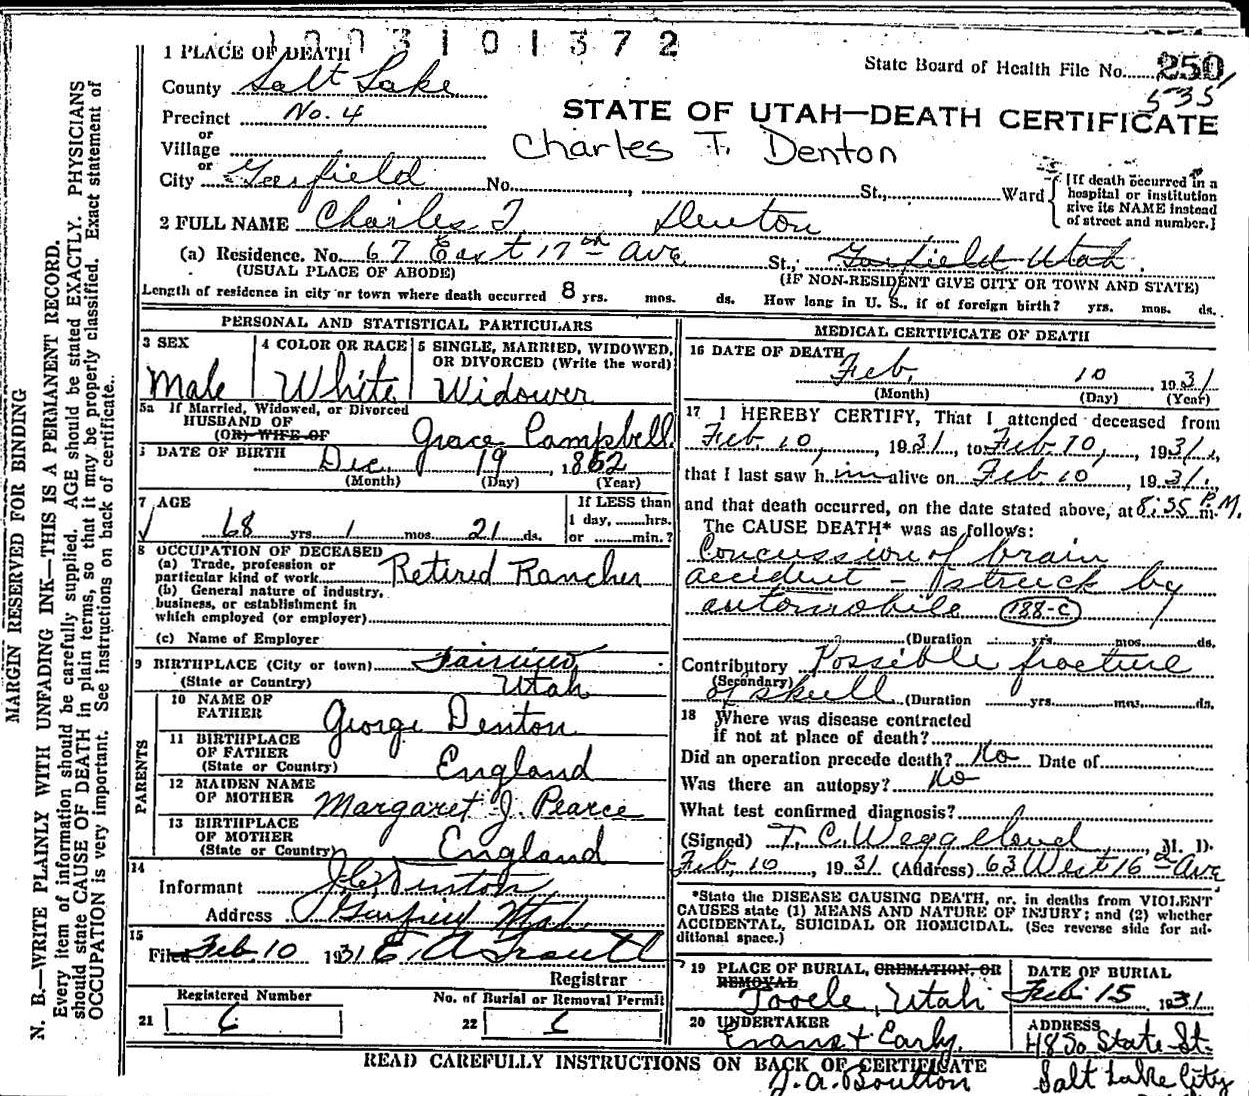 1003101372
1 PLACE OF DEATH
State Board of Health File No. 250
535
County Salt Lake
Precinct No. 4
STATE OF UTAH—DEATH CERTIFICATE
or
Village
Charles T. Denton
or
City Garfield No. , St., Ward
[If death occurred in a hospital or institution give its NAME instead of street and number.]
2 FULL NAME Charles T. Denton
(a) Residence. No. 67 East 17th Ave St., Garfield Utah.
(USUAL PLACE OF ABODE) (IF NON-RESIDENT GIVE CITY OR TOWN AND STATE)
Length of residence in city or town where death occurred 8 yrs. mos. ds. How long in U. S., if of foreign birth? yrs. mos. ds.
PERSONAL AND STATISTICAL PARTICULARS
3 SEX
Male
4 COLOR OR RACE
White
5 SINGLE, MARRIED, WIDOWED,
OR DIVORCED (Write the word)
Widower
5a If Married, Widowed, or Divorced
HUSBAND OF
(OR) WIFE OF
Grace Campbell
DATE OF BIRTH
Dec. 19, 1862
(Month) (Day) (Year)
7 AGE
68 yrs. 1 mos. 21 ds.
If LESS than
1 day, hrs.
or min.?
8 OCCUPATION OF DECEASED
(a) Trade, profession or
particular kind of work Retired Rancher
(b) General nature of industry,
business, or establishment in
which employed (or employer)
(c) Name of Employer
9 BIRTHPLACE (City or town) Fairview
(State or Country) Utah
PARENTS
10 NAME OF
FATHER George Denton
11 BIRTHPLACE
OF FATHER
(State or Country) England
12 MAIDEN NAME
OF MOTHER Margaret J. Pearce
13 BIRTHPLACE
OF MOTHER
(State or Country) England
14
Informant Denton
Address Garfield Utah
15
Filed Feb. 10 1931
Registrar
Registered Number
21 6
No. of Burial or Removal Permit
22
MEDICAL CERTIFICATE OF DEATH
16 DATE OF DEATH
Feb. 10, 1931
(Month) (Day) (Year)
17 I HEREBY CERTIFY, That I attended deceased from
Feb 10, 1931, to Feb 10, 1931,
that I last saw him alive on Feb 10, 1931,
and that death occurred, on the date stated above, at 8:35 P.M.
The CAUSE DEATH* was as follows:
Concussion of brain
accident - struck by
automobile 188-C
(Duration yrs. mos. ds.
Contributory Possible fracture
(Secondary)
of skull (Duration yrs. mos. ds.
18 Where was disease contracted
if not at place of death?
Did an operation precede death? No Date of
Was there an autopsy? No
What test confirmed diagnosis?
(Signed) T. C. Weggeland, M. D.
Feb. 10, 1931 (Address) 63 West 16th Ave
*State the DISEASE CAUSING DEATH, or, in deaths from VIOLENT
CAUSES state (1) MEANS AND NATURE OF INJURY; and (2) whether
ACCIDENTAL, SUICIDAL OR HOMICIDAL. (See reverse side for additional space.)
19 PLACE OF BURIAL, CREMATION, OR
REMOVAL
Tooele, Utah
DATE OF BURIAL
Feb. 15 1931
20 UNDERTAKER
Evans & Early.
J. A. Boulton
ADDRESS
48 So State St.
Salt Lake City
READ CAREFULLY INSTRUCTIONS ON BACK OF CERTIFICATE
MARGIN RESERVED FOR BINDING
N. B.—WRITE PLAINLY WITH UNFADING INK—THIS IS A PERMANENT RECORD.
Every item of information should be carefully supplied. AGE should be stated EXACTLY. PHYSICIANS
should state CAUSE OF DEATH in plain terms, so that it may be properly classified. Exact statement of
OCCUPATION is very important. See instructions on back of certificate.